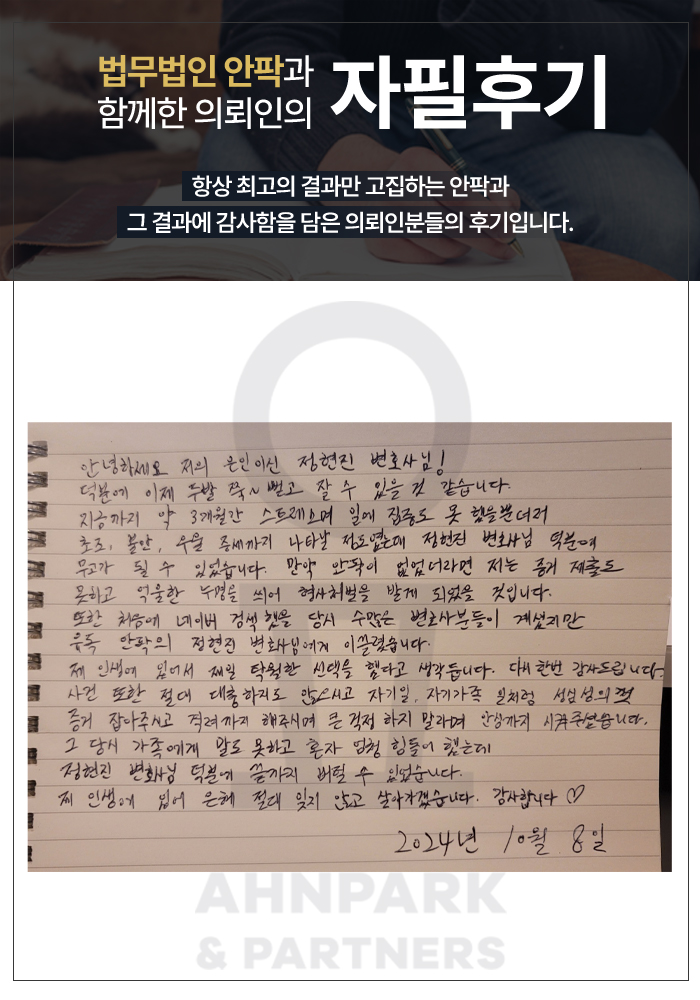 법무법인 안팍과
함께한 의뢰인의
자필후기
항상 최고의 결과만 고집하는 안팍과
그 결과에 감사함을 담은 의뢰인분들의 후기입니다.
안녕하세요 저의 은인이신 정현진 변호사님!
덕분에 이제 두발 쭉~ 뻗고 잘 수 있을 것 같습니다.
지금까지 약 3개월간 스트레스며 일에 집중도 못 했을뿐더러
초조, 불안, 우울 증세까지 나타날 정도였는데 정현진 변호사님 덕분에
무고가 될 수 있었습니다. 만약 안팍이 없었더라면 저는 증거 제출도
못하고 억울한 누명을 씌어 형사처벌을 받게 되었을 것입니다.
또한 처음에 네이버 검색했을 당시 수많은 변호사분들이 계셨지만
유독 안팍의 정현진 변호사님에게 이끌렸습니다.
제 인생에 있어서 제일 탁월한 선택을 했다고 생각듭니다. 다시한번 감사드립니다.
사건 또한 절대 대충하지도 않으시고 자기일, 자기가족 일처럼 성심성의껏
증거 잡아주시고 격려까지 해주시며 큰 걱정 하지 말라며 안심까지 시켜주셨습니다.
그 당시 가족에게 말도 못하고 혼자 엄청 힘들어 했는데
정현진 변호사님 덕분에 끝까지 버틸 수 있었습니다.
제 인생에 있어 은혜 절대 잊지 않고 살아가겠습니다. 감사합니다 ♡
2024년 10월 8일
AHNPARK
& PARTNERS